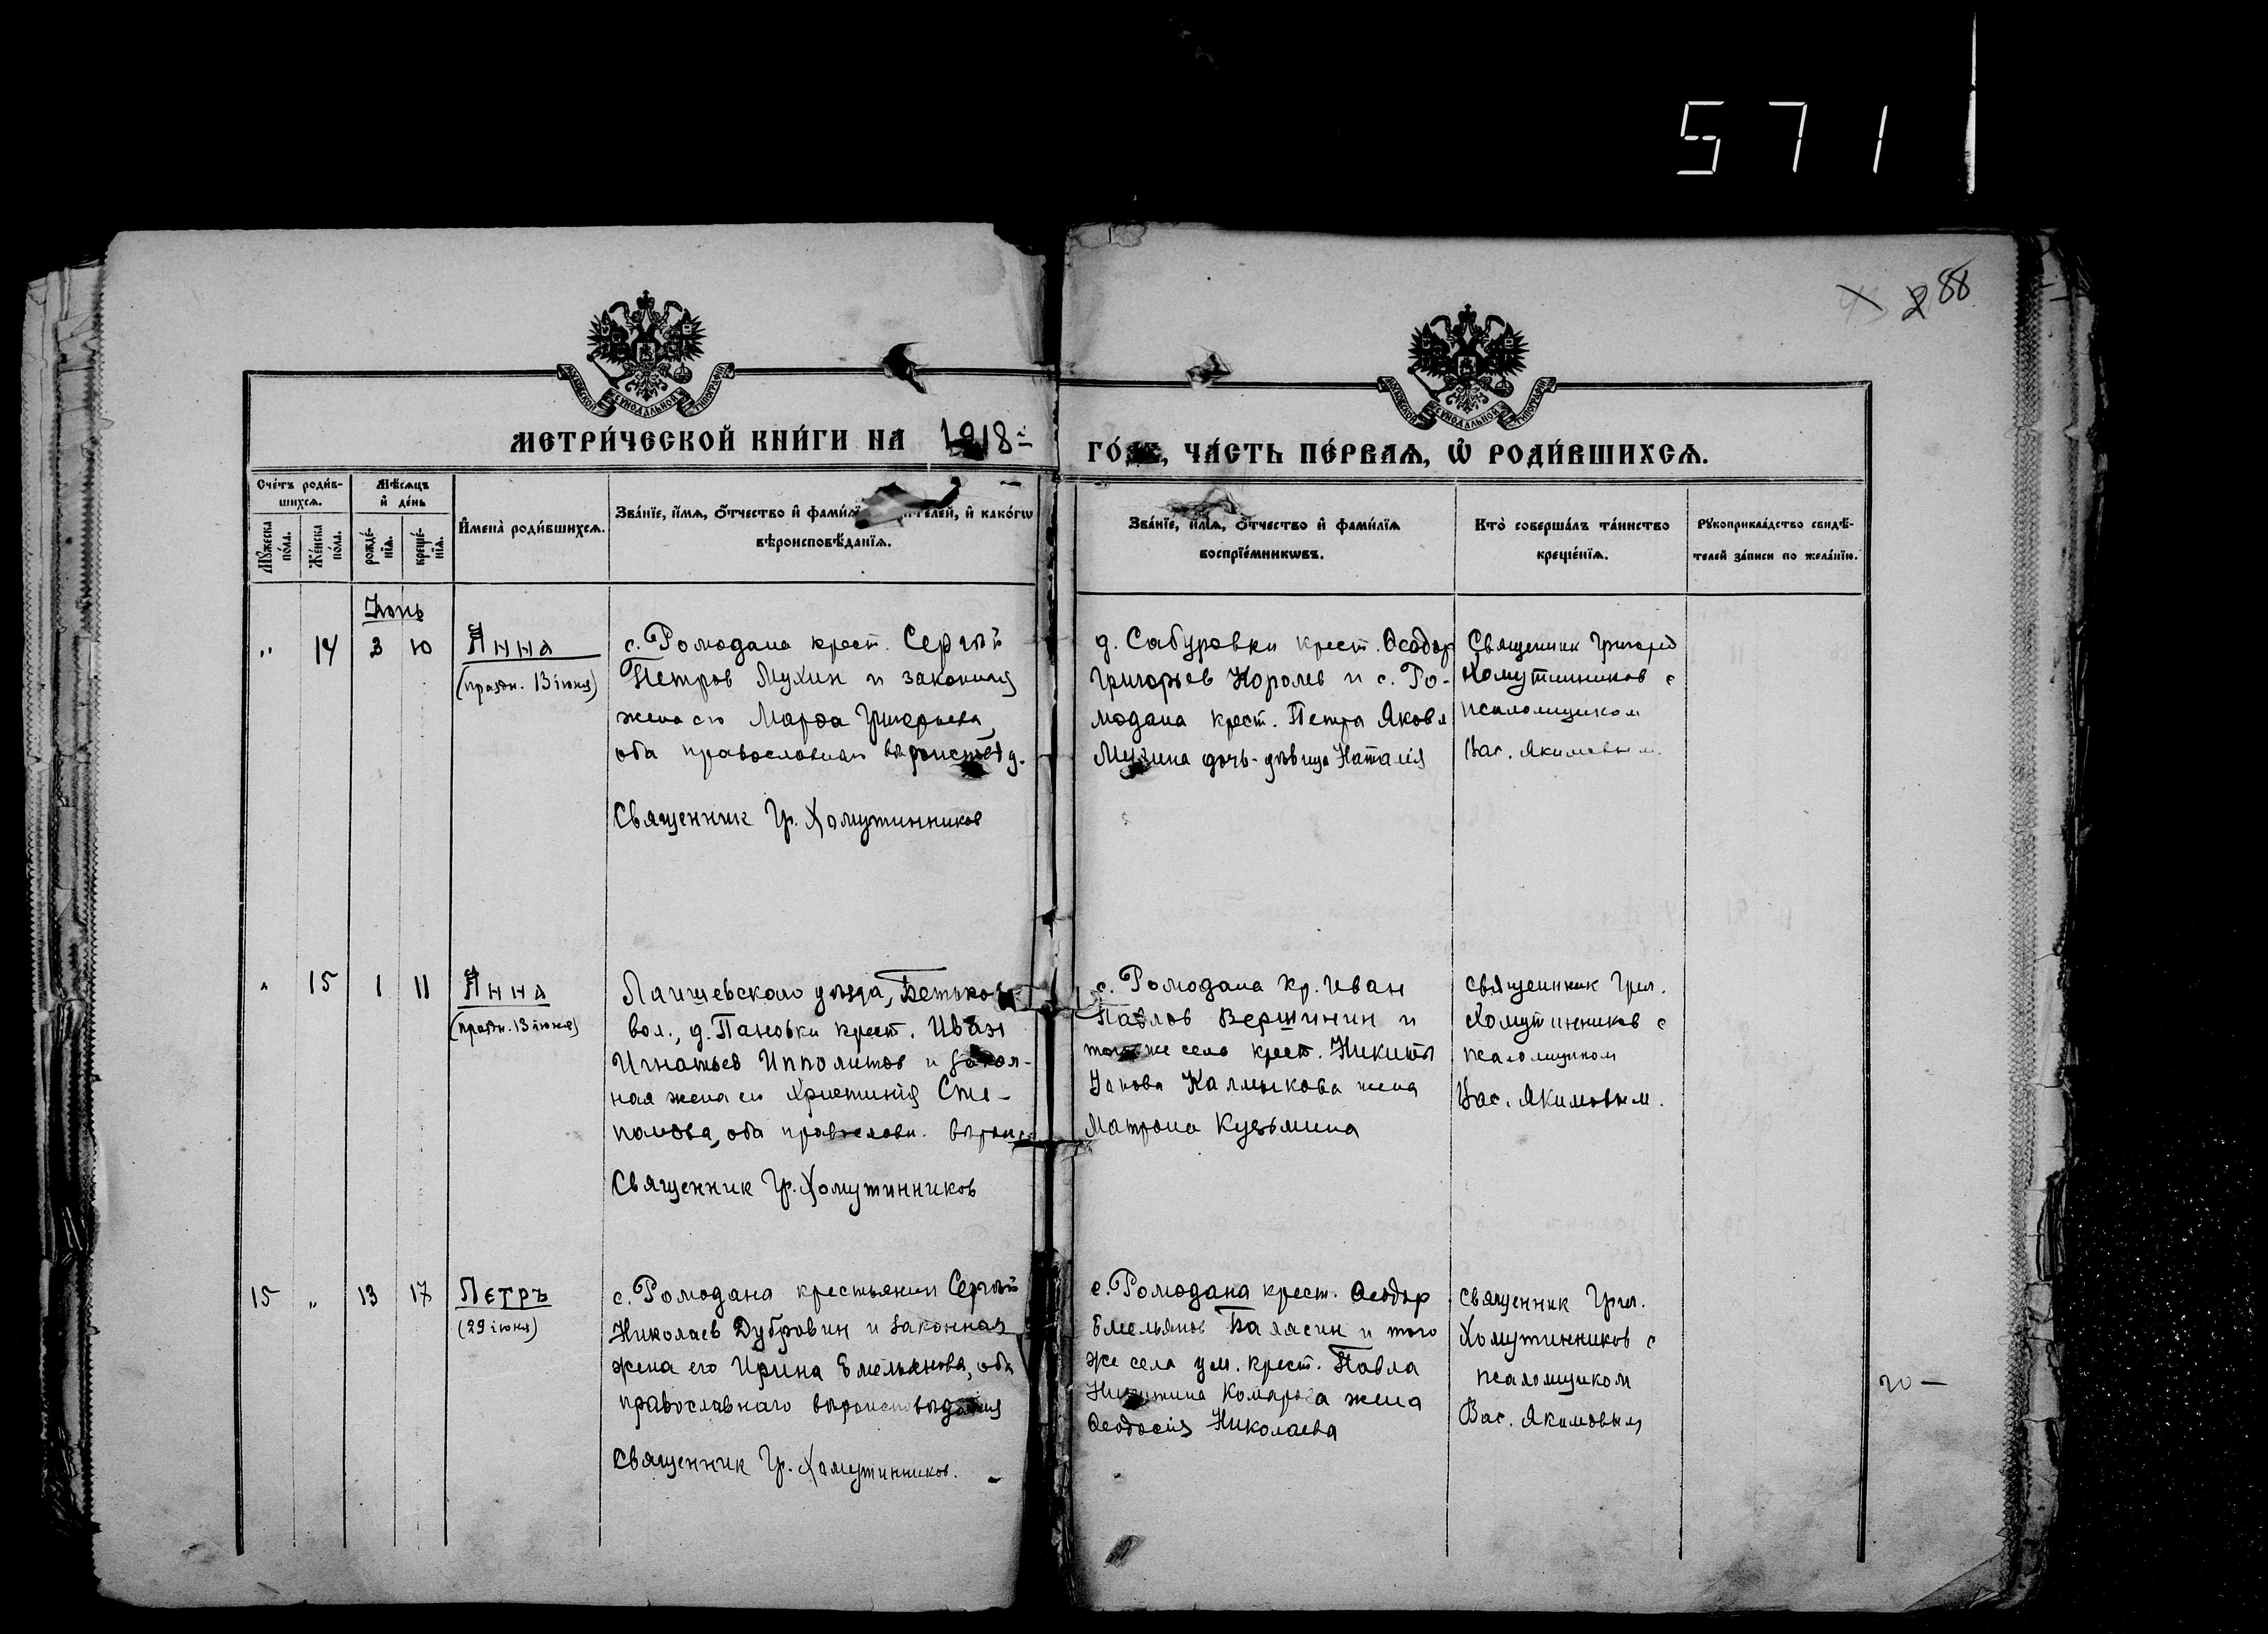 571
88
МОСКОВСКОЙ СѴНОДАЛЬНОЙ ТИПОГРАФІИ
МОСКОВСКОЙ СѴНОДАЛЬНОЙ ТИПОГРАФІИ
МЕТРИ́ЧЕСКОЙ КНИ́ГИ НА 1918 ГО́ДЪ, ЧА́СТЬ ПЕ́РВАѦ, Ѽ РОДИ́ВШИХСѦ.
Сче́тъ роди́в-
шихсѧ.
Мѣ́сѧцъ
и҆ де́нь
Мꙋ́жеска
по́ла.
Же́нска
по́ла.
рожде́-
нїѧ.
креще́-
нїѧ.
И҆мена̀ роди́вшихсѧ.
Зва́нїе, и҆́мѧ, ѻ҆́тчество и҆ фами́лїѧ родителей, и҆ како́гѡ
вѣроисповѣ́данїѧ.
Зва́нїе, и҆́мѧ, ѻ҆́тчество и҆ фами́лїѧ
воспрїе́мникѡвъ.
Кто̀ соверша́лъ та́инство
креще́нїѧ.
Рꙋкоприкла́дство свидѣ́-
телей за́писи по жела́нїю.
Июнь
" 14 3 10 Анна
(празн. 13 іюня)
с. Ромодана крест. Сергѣй
Петров Мухин и законная
жена его Марѳа Григорьева,
оба православнаго вѣроисповѣд.
Священник Гр. Хомутинников
д. Сабуровки крест. Ѳеодор
Григорьев Королев и с. Ро-
модана крест. Петра Яковл
Мухина дочь-дѣвица Наталія
Священник Григорій
Хомутинников с
псаломщиком
Вас. Якимовым.
" 15 1 11 Анна
(празн. 13 іюня)
Лаишевского уѣзда, Бетьков
вол., д. Пановки крест. Иван
Игнатьев Ипполитов и закон-
ная жена его Христинія Сте-
панова, оба православн. вѣроис.
Священник Гр. Хомутинников
с. Ромодана кр. Иван
Павлов Вершинин и
того же села крест. Никиты
Калмыкова жена
Матрона Кузьмина
Священник Григ.
Хомутинников с
псаломщиком
Вас. Якимовым.
15 " 13 17 Петръ
(29 іюня)
с. Ромодана крестьянин Сергѣй
Николаев Дубровин и законная
жена его Ирина Емельянова, оба
православнаго вѣроисповѣданія
Священник Гр. Хомутинников.
с. Ромодана крест. Ѳеодор
Емельянов Балясин и того
же села ум. крест. Павла
Никитина Комарова жена
Ѳеодосія Николаева
Священник Григ.
Хомутинников с
псаломщиком
Вас. Якимовым
20 —